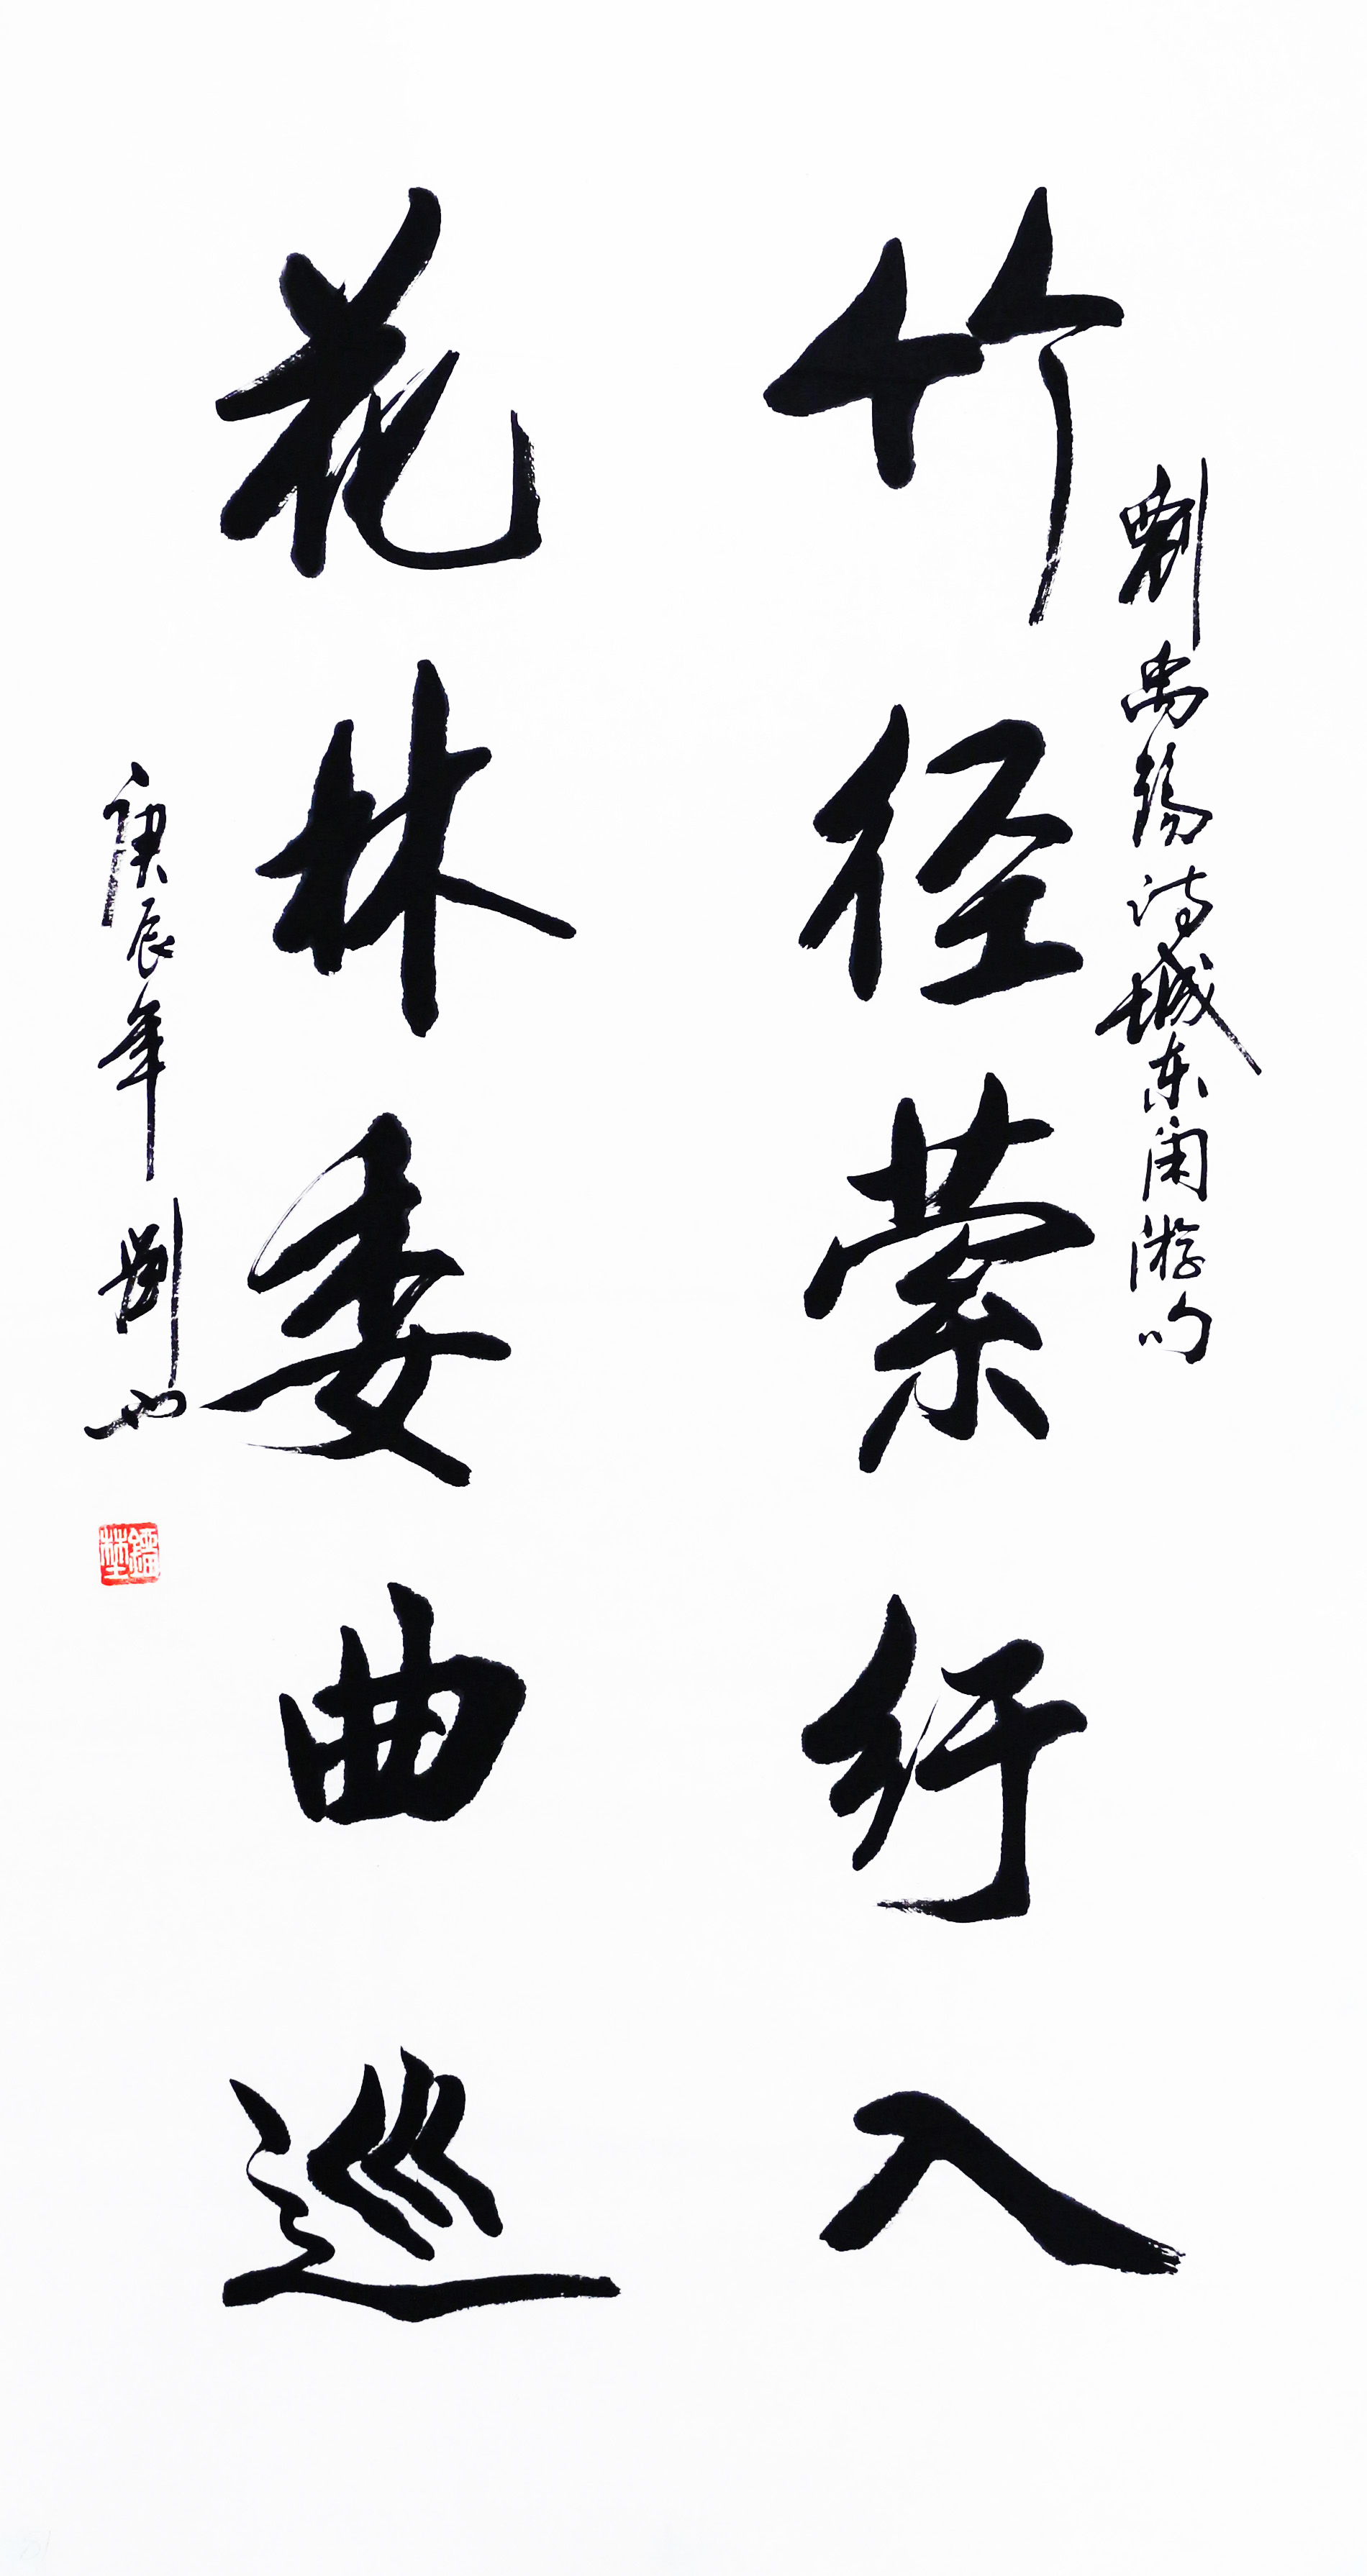 劉禹锡诗城东闲游句
竹径萦纡入
花林委曲巡
庚辰年劉也
鎦埜